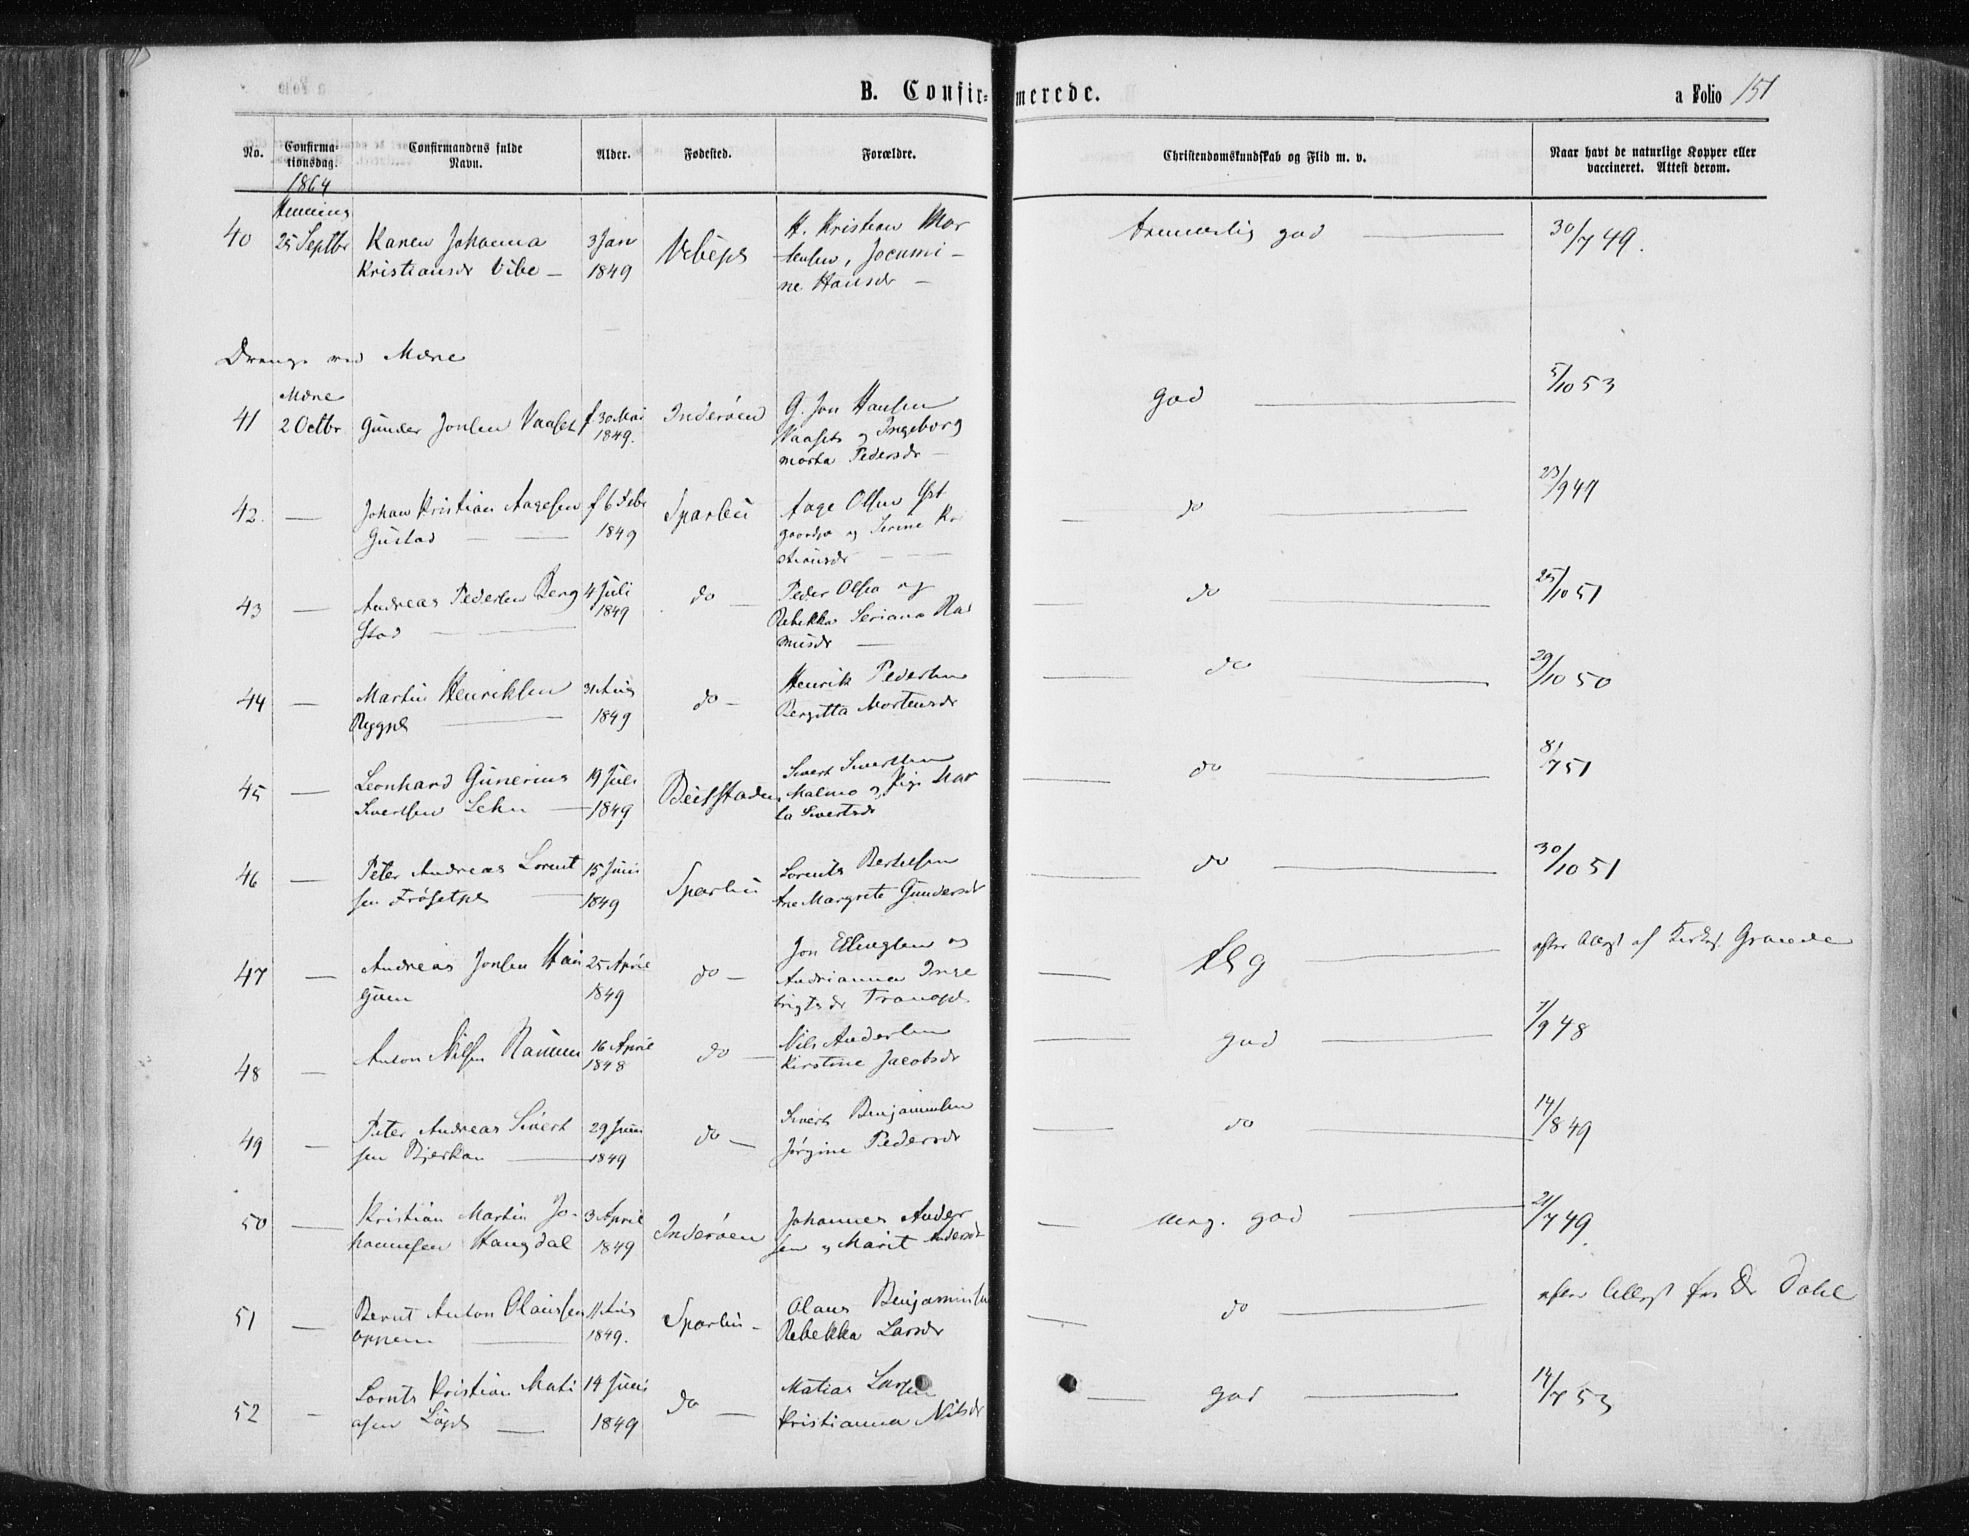 B. Confirmerede.
a Folio 151
No.
Confirma-
tionsdag.
Confirmandens fulde
Navn.
Alder.
Fødested.
Forældre.
Christendomskundskab og Flid m. v.
Naar havt de naturlige Kopper eller
vaccineret. Attest derom.
1864
Henning
40 25 Septbr Karen Johanna 3 Jan H. Kristian Mor 30/7 49.
Kristiansdr Vibe — 1849 tensen, Jocumi —
ne Hansdr —
god
Drenge ved Mære
Mære
41 2 Octbr Gunder Jonsen Vaaset f 30 Mai Inderøen G. Jon Hansen god 5/10 53
1849. Vaaset og Ingeborg
marta Pedersdr —
42. — Johan Kristian Aagesen f 6 Febr Sparbu Aage Olsen Øst — do — 23/9 49
Gustad — 1849 og Serine Kri
stiansdr —
43 — Andreas Pedersen Berg 4 Juli do — Peder Olsen og — do — 25/10 51
stad — 1849 Rebekka Seriana Ras
musdr —
44 — Martin Henriksen 31 Aug do — Henrik Pedersen — do — 29/10 50
1849 Bergitta Mortensdr
45 — Leonhard Gunerius 19 Juli Beitstaden Sivert Sivertsen — do — 8/7 51
Sivertsen Lehn — 1849 Malmo og Pige Mar
ta Sivertsdr
46 — Peter Andreas Lorent 15 Juni Sparbu Lorents Bertelsen — do — 30/10 51
sen — 1849 Ane Margrete Gundersdr
47 — Andreas Jonsen Hau 25 April do — Jon Ellingsen og
gum 1849 Andrianna Inge
brigtsdr
48 — Anton Nilsen 16 April do — Nils Andersen — god — 7/9 48
1848 Kirstine Jacobsdr
49 — Peter Andreas Sivert 29 Juni do — Sivert Benjaminsen — do — 14/8 49
sen Bjerkan — 1849 Jørgine Pedersdr
50 — Kristian Martin Jo- 3 April Inderøen Johannes Ander — meg. god — 21/7 49.
hannesen Hangdal 1849 sen og Marit Andersdr
51 — Bernt Anton Olaussen 11 Aug Sparbu — Olaus Benjaminsen — do — Dr Dahl
oppem — 1849. Rebekka Larsdr
52 — Lornts Kristian Mati 14 Juni do — Matias Larsen — god — 14/7 53
asen — 1849 Kristianna Nilsdr